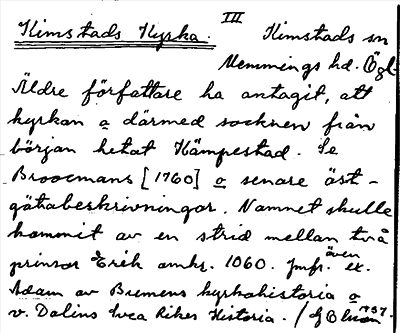 III
Kimstads Kyrka. Kimstads sn
Memmings hd. Ögl.
Äldre författare ha antagit, att
kyrkan o därmed socknen från
början hetat Kämpestad. Se
Broocmans [1760] o senare öst-
götabeskrivningar. Namnet skulle
kommit av en strid mellan två
prinsar Erik omkr. 1060. Jmfr. även ex.
Adam av Bremens kyrkohistoria o
v. Dalins Svea Rikes Historia. / G Olsson 1937.